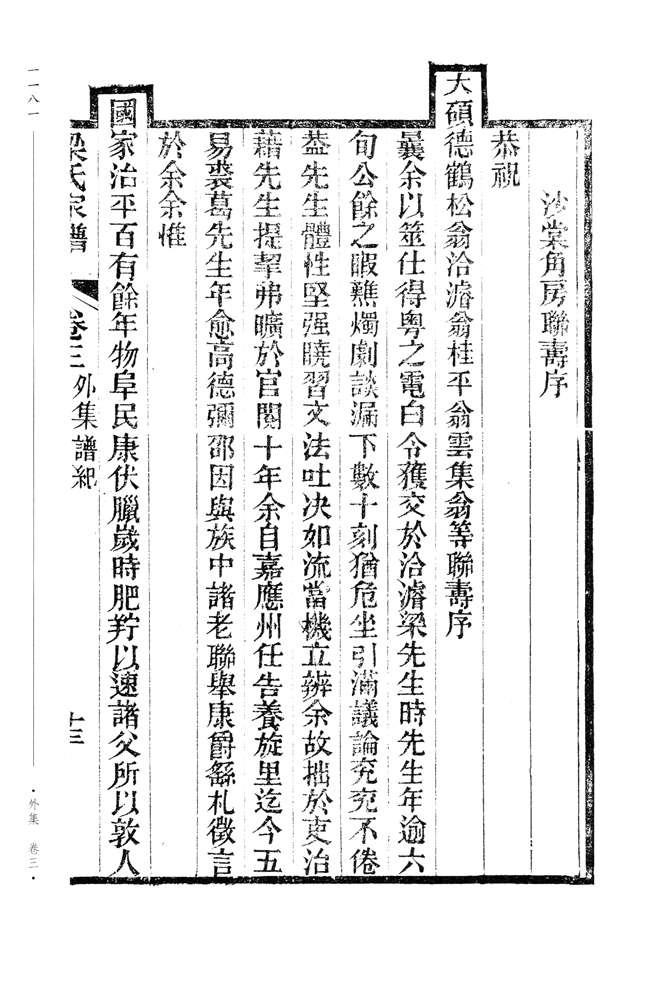 沙棠角房聯壽序
恭祝
大碩德鶴松翁洽濬翁桂平翁雲集翁等聯壽序
曩余以筮仕得粵之電白令獲交於洽濬梁先生時先生年逾六
旬公餘之暇蘸燭劇談漏下數十刻猶危坐引滿議論亮亮不倦
蓋先生體性堅强曉習文法吐决如流當機立辨余故拙於吏治
藉先生提挈弗曠於官閱十年余自嘉應州任告養旋里迄今五
易裘葛先生年愈高德彌邵因與族中諸老聯舉康爵繇札徵言
於余余惟
國家治平百有餘年物阜民康伏臘歲時肥羜以速諸父所以敦人
梁氏家譜 卷三 外集譜紀 十三
一一八一
·外集 卷三·